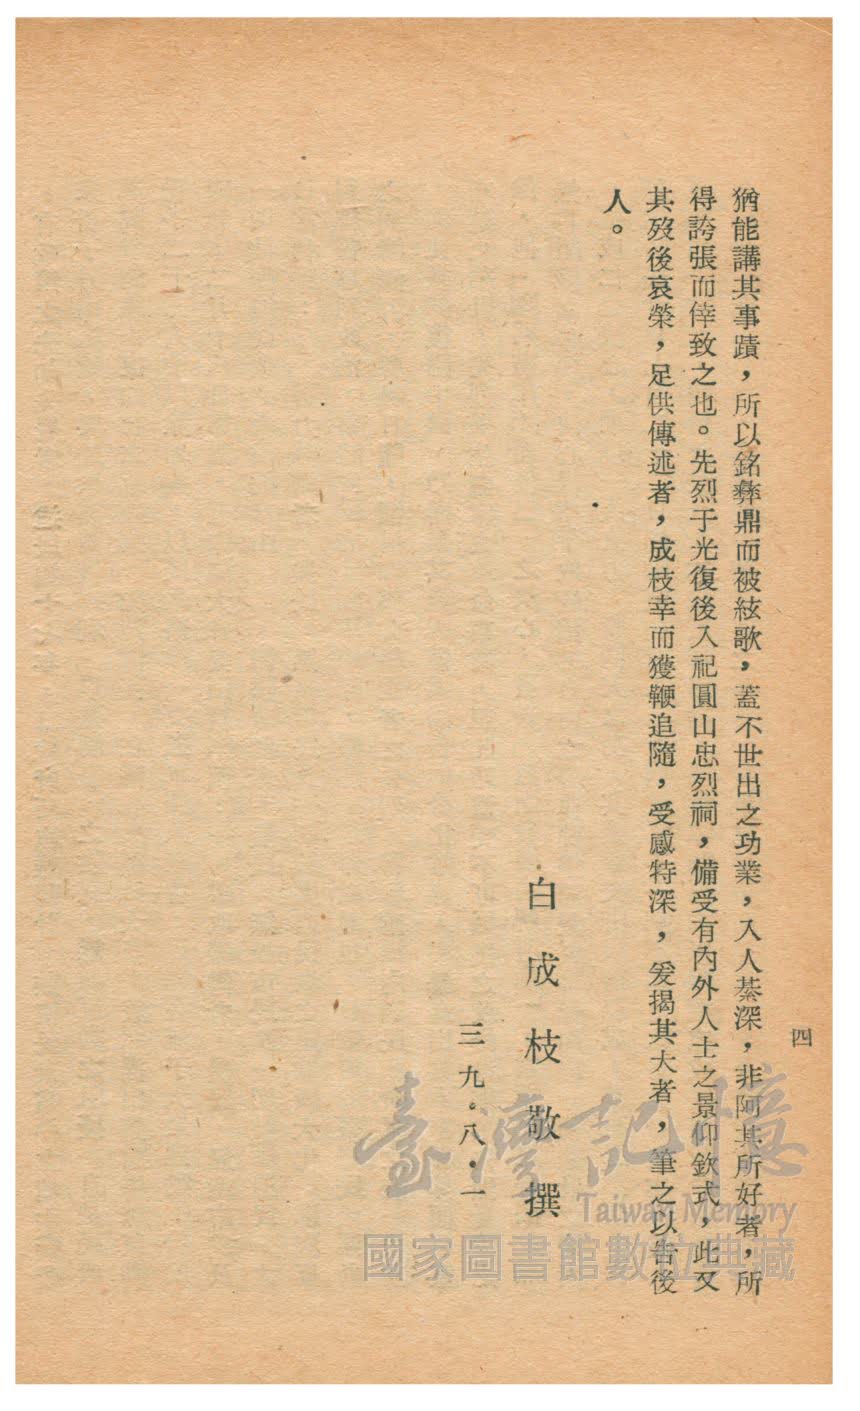 四
猶能講其事蹟，所以銘彝鼎而被絃歌，蓋不世出之功業，入人綦深，非阿其所好者，所
得誇張而倖致之也。先烈于光復後入祀圓山忠烈祠，備受有內外人士之景仰欽式，此又
其歿後哀榮，足供傳述者，成枝幸而獲鞭追隨，受感特深，爰揭其大者，筆之以告後
人。
白成枝敬撰
三九。八。一
臺灣記憶
Taiwan Memory
國家圖書館數位典藏